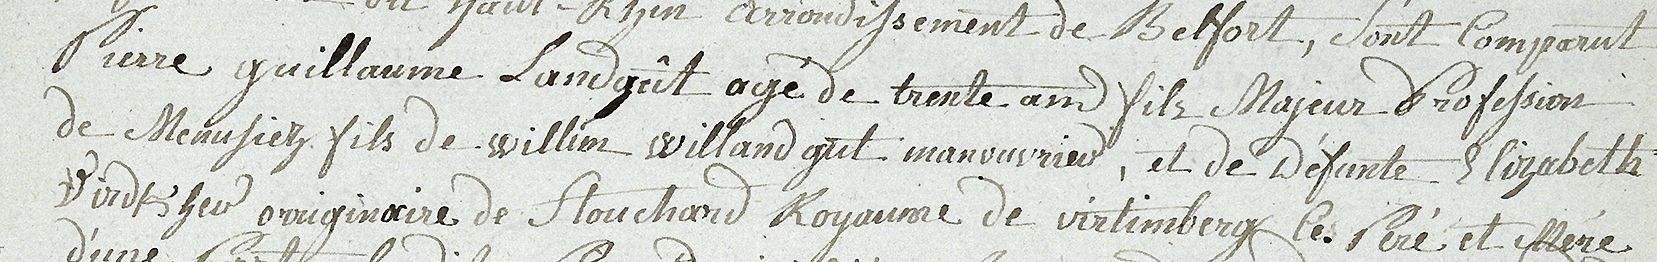 du haut-Rhin arrondissement de Belfort, Sont Comparut
Pierre guillaume Landgût agé de trente ans fils Majeur Profession
de Menusier fils de willim willand gut manouvrier, et de Défunte Elizabeth
originaire de Stouchard Royaume de virtimberg Ce. Péré et Mére
d'une Part